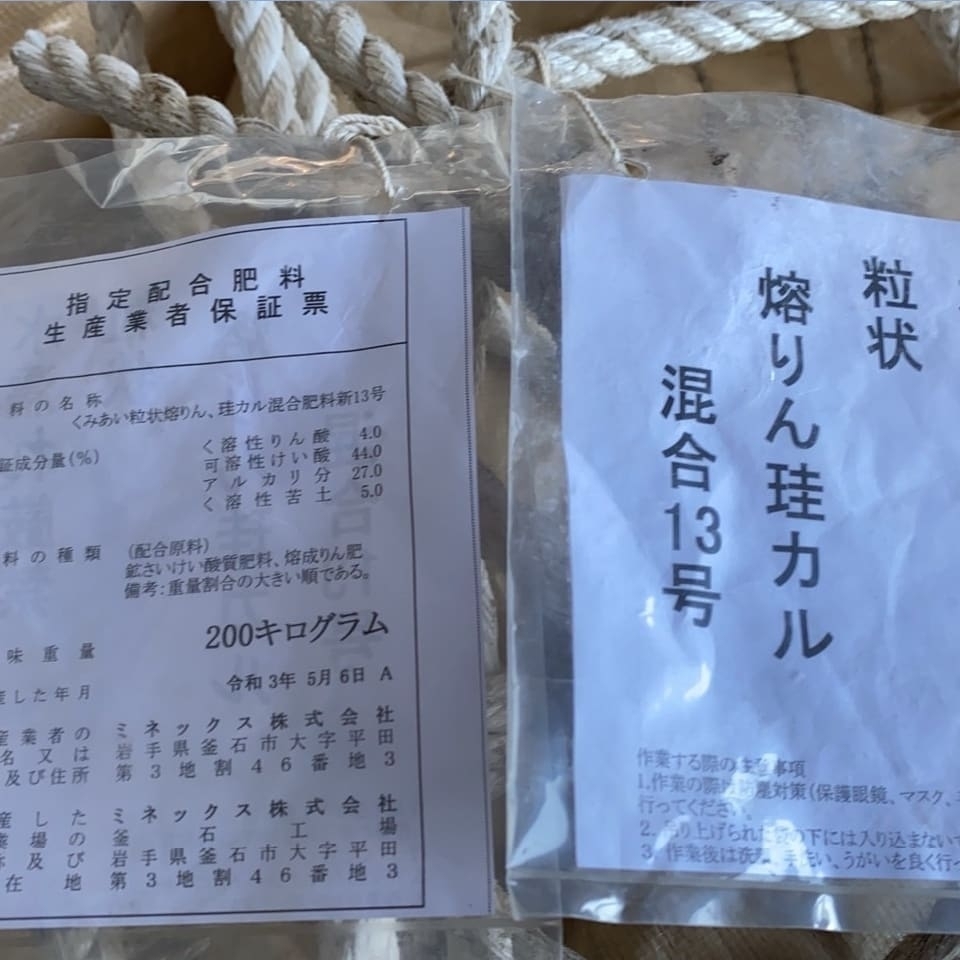 指定配合肥料
生産業者保証票
料の名称
くみあい粒状熔りん、珪カル混合肥料新13号
証成分量(%)
く溶性りん酸 4.0
可溶性けい酸 44.0
アルカリ分 27.0
く溶性苦土 5.0
料の種類
(配合原料)
鉱さいけい酸質肥料、熔成りん肥
備考:重量割合の大きい順である。
味重量
200キログラム
産した年月
令和3年 5月6日 A
産業者の ミネックス株式会社
名又は 岩手県釜石市大字平田
及び住所 第3地割46番地3
産した ミネックス株式会社
業場の 釜石工場
称及び 岩手県釜石市大字平田
在地 第3地割46番地3
粒状
熔りん珪カル
混合13号
作業する際の注意事項
1.作業の際は防塵対策(保護眼鏡、マスク、
行ってください。
2. 吊り上げられた袋の下には入り込まない
3. 作業後は洗顔、手洗い、うがいを良く行っ